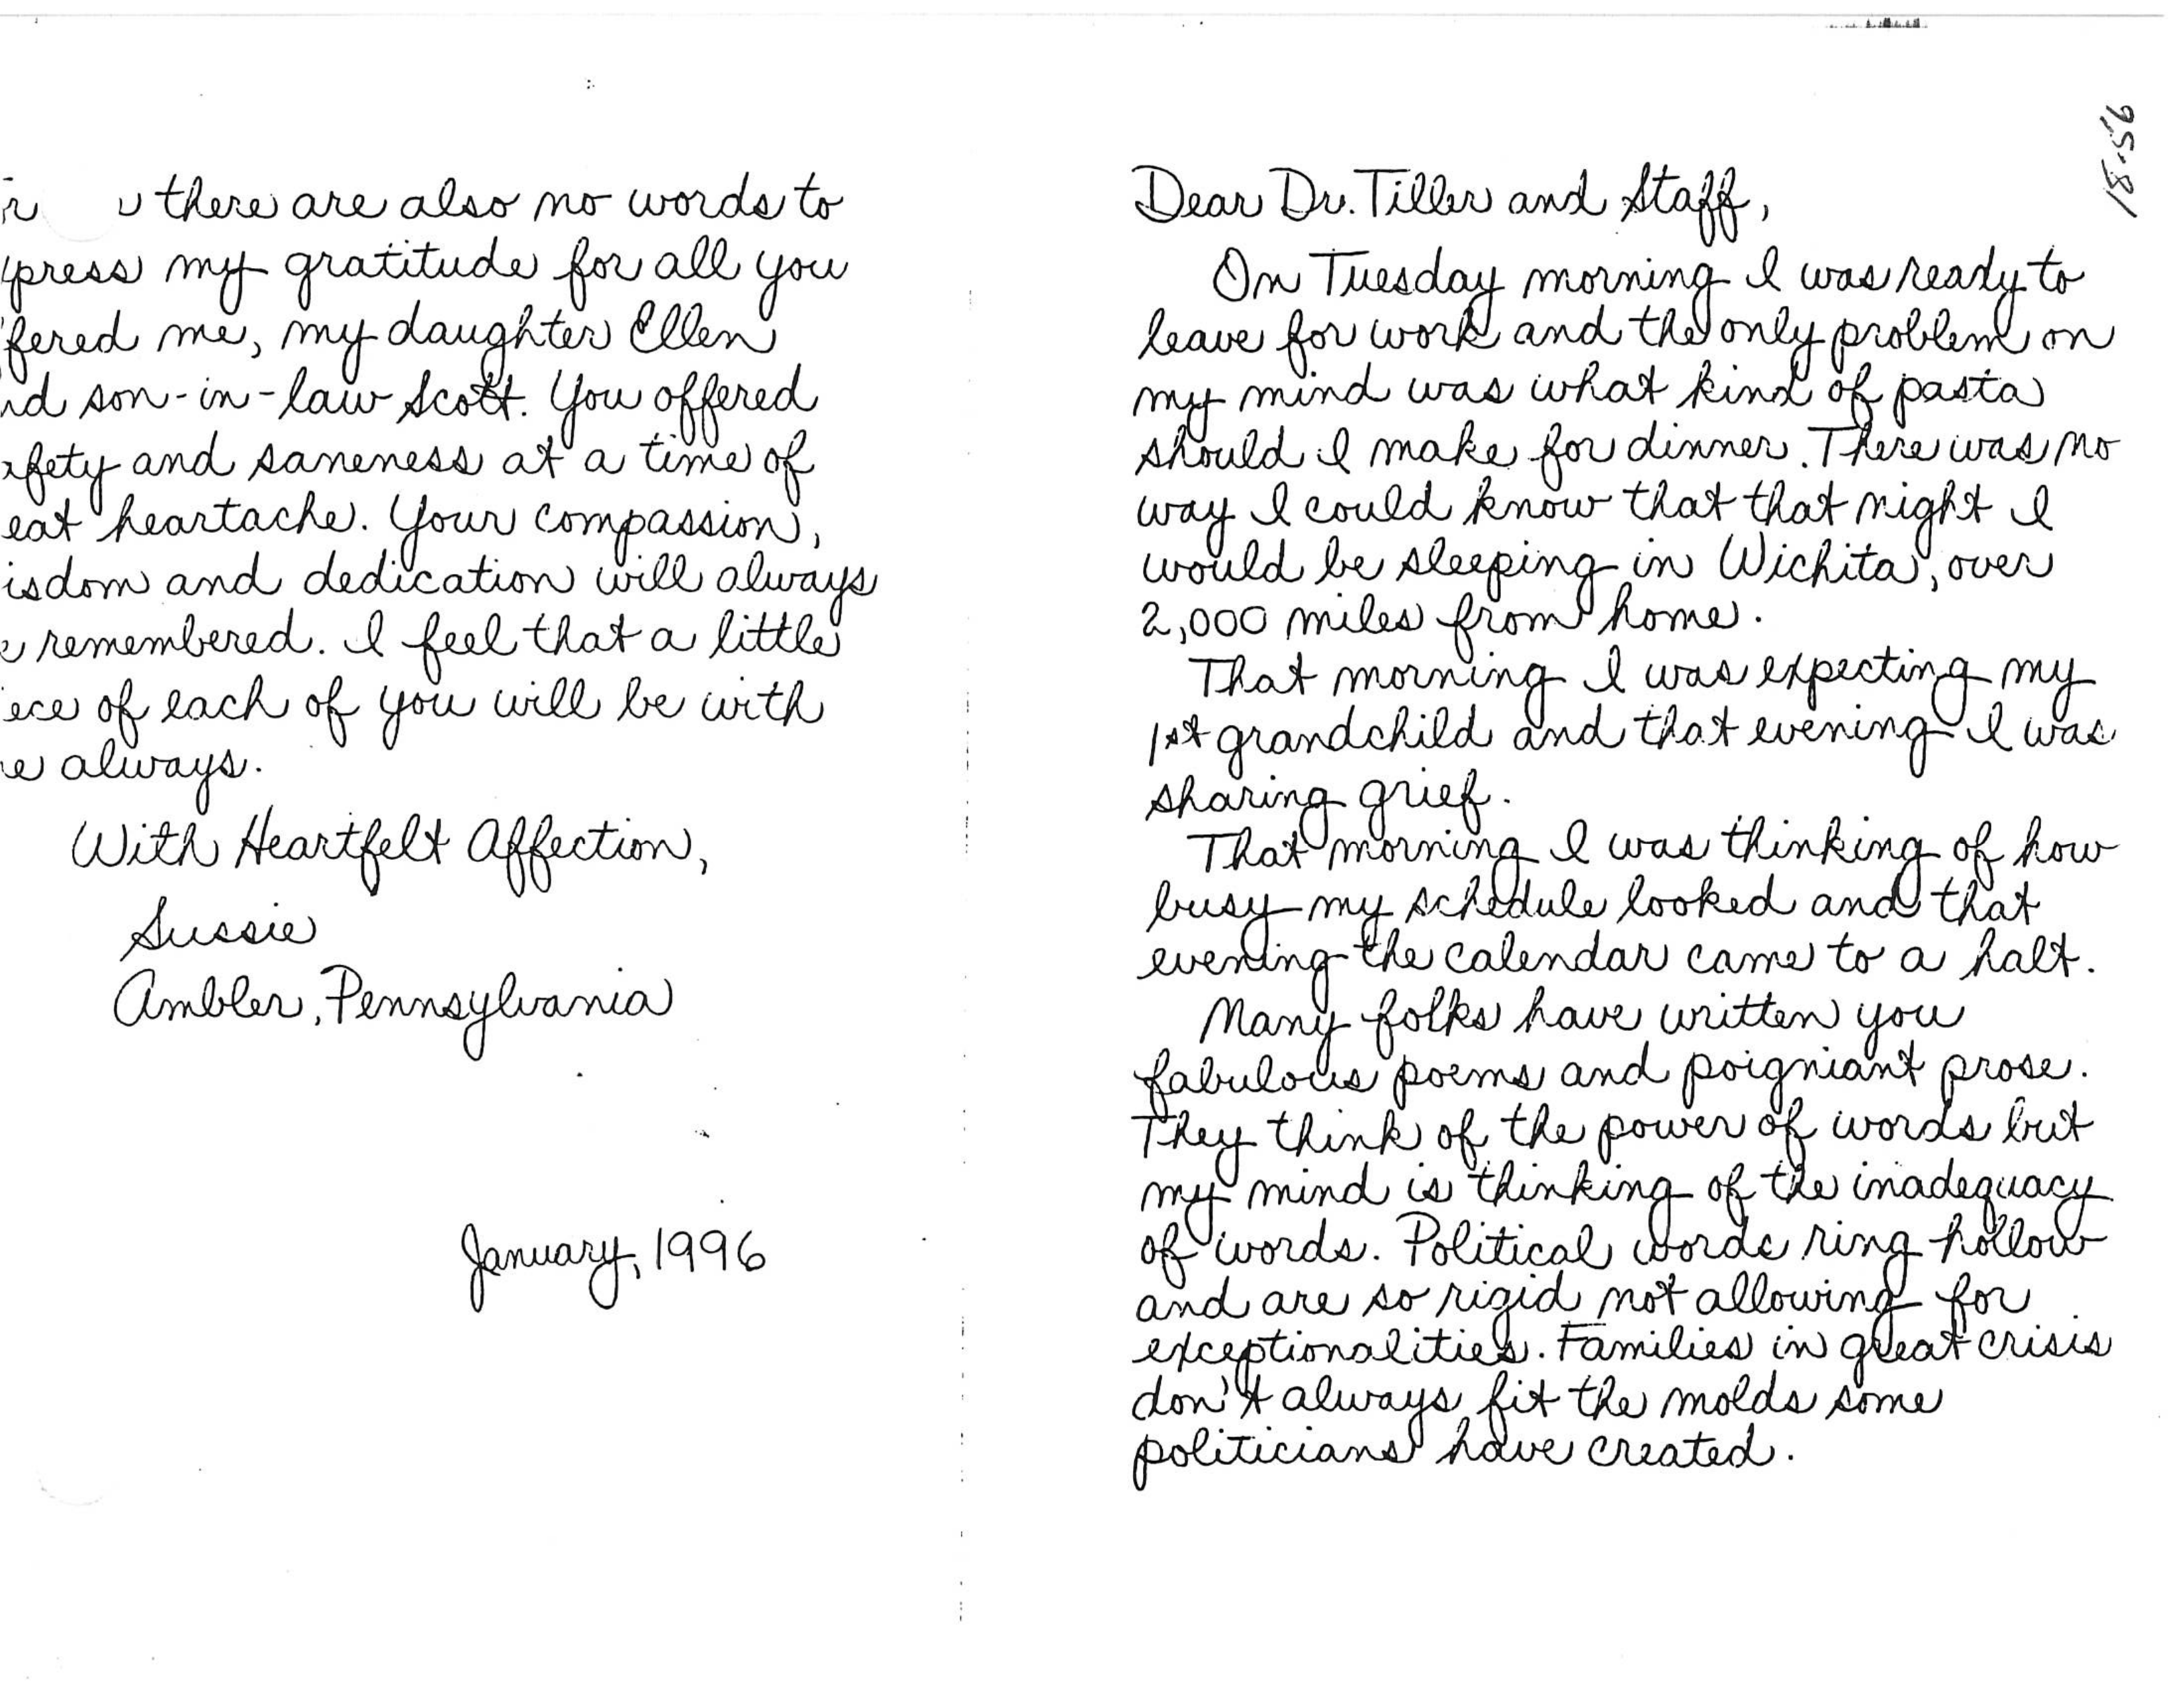 there are also no words to
press my gratitude for all you
fered me, my daughter Ellen
nd son-in-law Scott. You offered
fety and saneness at a time of
eat heartache. Your compassion,
isdom and dedication will always
e remembered. I feel that a little
ece of each of you will be with
e always.
With Heartfelt Affection,
Sussie
Ambler, Pennsylvania
January, 1996
Dear Dr. Tiller and Staff,
On Tuesday morning I was ready to
leave for work and the only problem on
my mind was what kind of pasta
should I make for dinner. There was no
way I could know that that night I
would be sleeping in Wichita, over
2,000 miles from home.
That morning I was expecting my
1st grandchild and that evening I was
sharing grief.
That morning I was thinking of how
busy my schedule looked and that
evening the calendar came to a halt.
Many folks have written you
fabulous poems and poigniant prose.
They think of the power of words but
my mind is thinking of the inadequacy
of words. Political words ring hollow
and are so rigid not allowing for
exceptionalities. Families in great crisis
don't always fit the molds some
politicians have created.